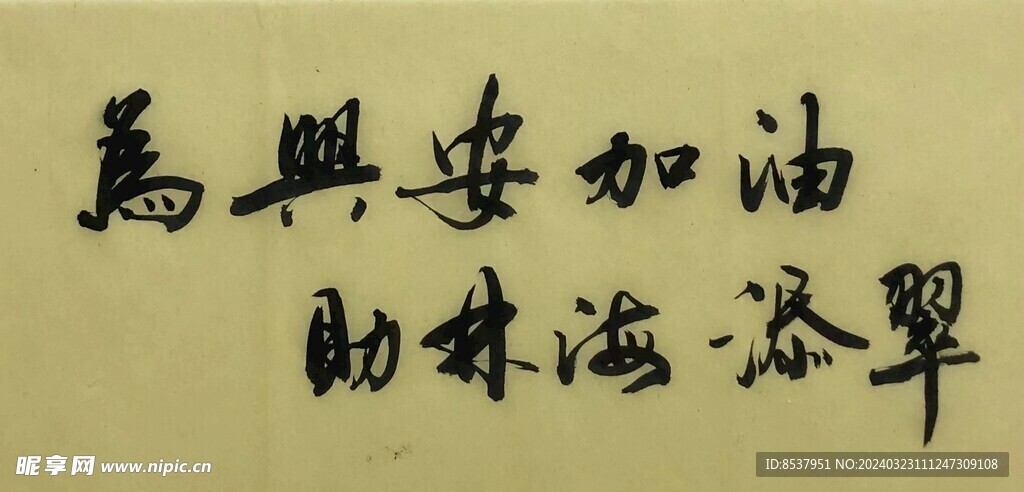 為興安加油
助林海添翠
昵享网 www.nipic.cn
ID:8537951 NO:20240323111247309108